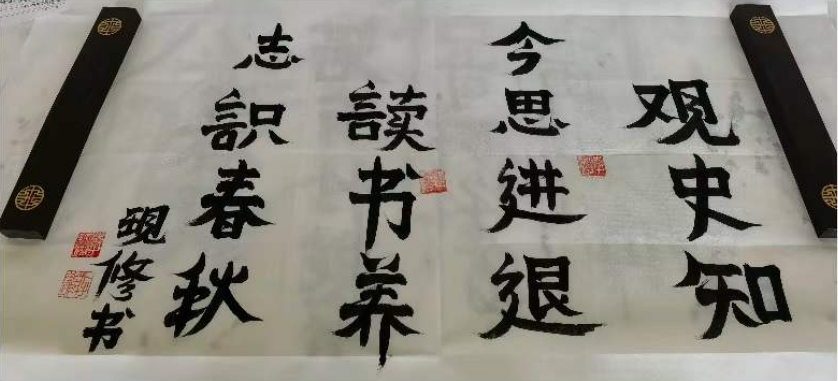 观史知
今思进退
读书养
志识春秋
砚修书